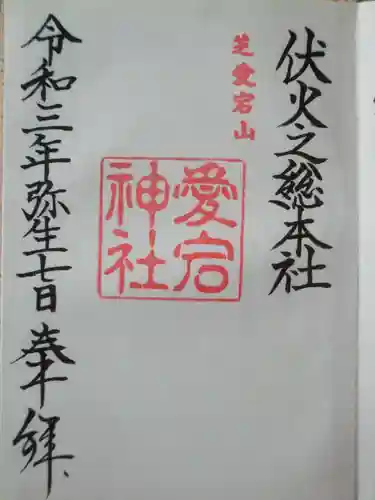 伏火之總本社
芝愛宕山
愛宕
神社
令和三年弥生七日 奉拝